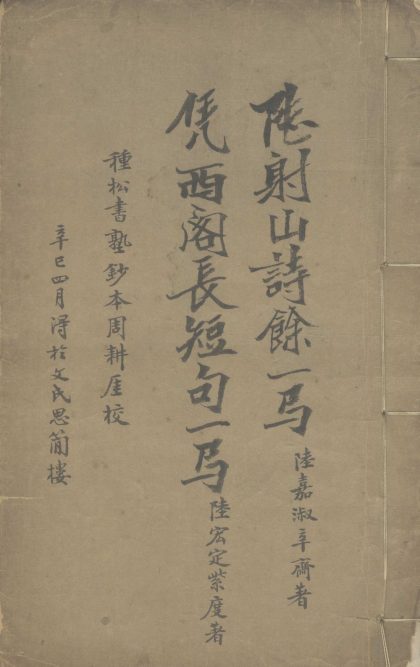 陸射山詩餘一弓 陸嘉淑辛齋著
凭西閣長短句一弓 陸宏定紫度著
種松書塾鈔本周耕厓校
辛巳四月得於文氏思簡樓